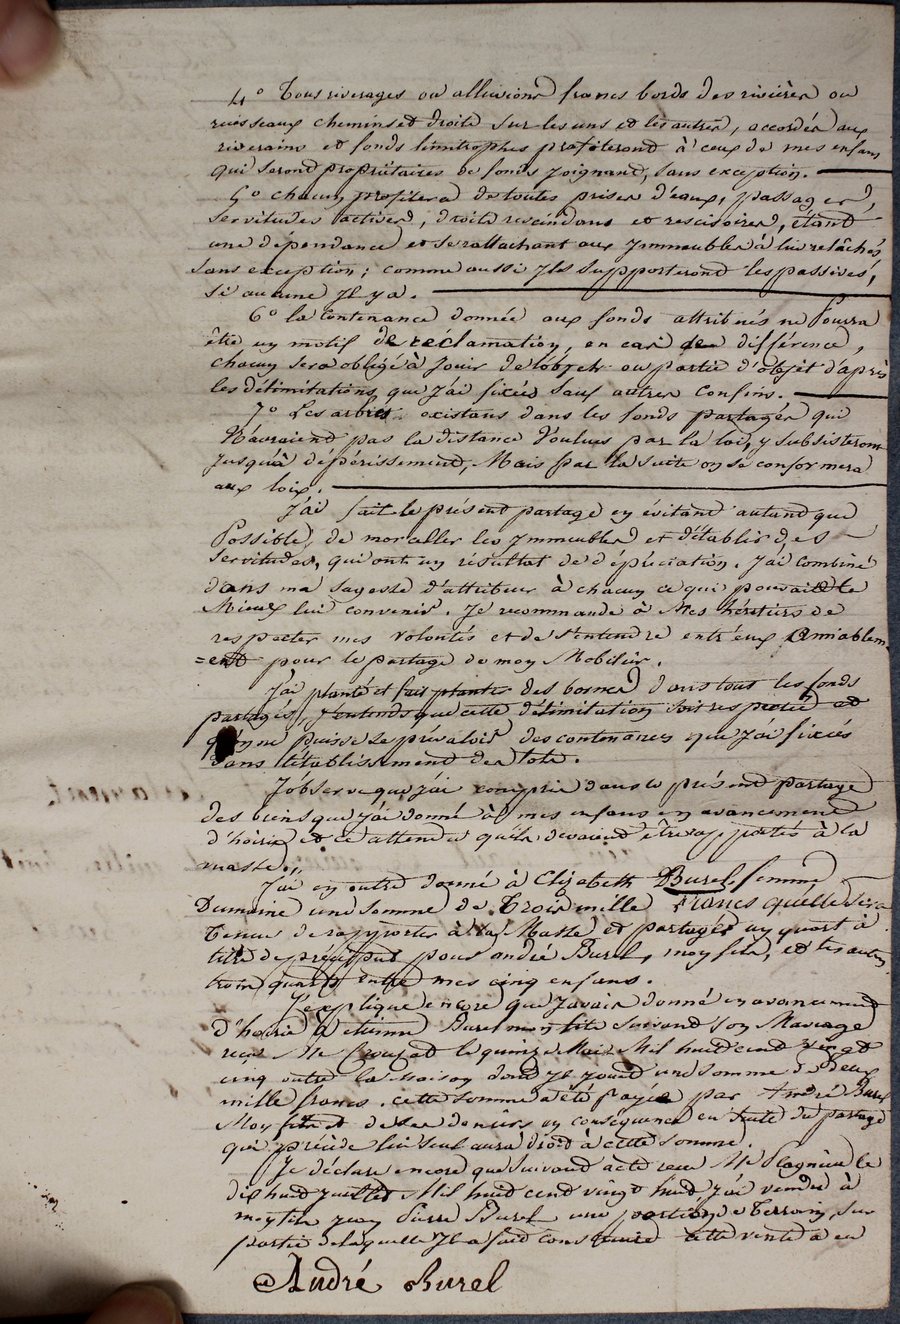 4.° Tous riverages ou alluvions francs bords des rivières ou
ruisseaux chemins et droits sur les uns et les autres, accordés aux
riverains et fonds limitrophes profiteront à ceux de mes enfans
qui seront propriétaires de fonds joignant, sans exception.
5.° chacun profitera de toutes prises d'eaux, passages,
servitudes actives, droits rescindans et rescisoires, étant
une dépendance et se rattachant aux immeubles à lui relâchés
sans exception; comme aussi ils supporteront les passives,
si aucune il y a.
6.° la contenance donnée aux fonds attribués ne pourra
être un motif de réclamation, en cas de différence,
chacun sera obligé à jouir de l'objet ou partie d'objet d'après
les délimitations que j'ai fixées sauf autres confins.
7.° Les arbres existans dans les fonds partagés qui
n'auraient pas la distance voulue par la loi, y subsisteront
jusqu'à dépérissement, Mais par la suite on se conformera
aux loix.
J'ai fait le présent partage en évitant autant que
Possible, de morceller les immeubles et d'établir des
servitudes, qui ont un résultat de dépréciation. J'ai combiné
dans ma sagesse d'attribuer à chacun ce qui pouvait le
Mieux lui convenir. Je recommande à Mes héritiers de
respecter mes volontés et de s'entendre entr'eux amiablem
=ent pour le partage de mon Mobilier.
J'ai planté et fait planter des bornes dans tous les fonds
partagés, j'entends que cette délimitation soit respectée et
qu'on ne puisse se prévaloir des contenances que j'ai fixées
dans l'établissement des lots.
J'observe que j'ai compris dans le présent partage
des biens que j'ai donné à mes enfans en avancement
d'hoirie et ce attendu qu'ils devaient être rapportés à la
masse.
J'ai en outre donné à Elizabeth Burel femme
Dumaine une somme de Trois mille francs qu'elle sera
tenue de rapporter à la Masse et partagés un quart à
titre de préciput pour andré Burel, mon fils, et les autres
trois quarts entre mes cinq enfans.
J'explique encore que j'avais donné en avancement
d'hoirie à etienne Burel mon fils suivant son Mariage
reçu Me Crouzat le quinze Mai Mil huit cent vingt
cinq outre la maison dont il jouit une somme de deux
mille francs. cette somme a été payée par André Burel
Mon fils et de ses deniers en conséquence en suite du partage
qui précède lui seul aura droit à cette somme.
Je déclare encore que suivant acte reçu Me Plagnieu le
dix huit juillet Mil huit cent vingt huit, j'ai vendu à
mon fils jean Pierre Burel une portion de terrain, sur
partie de laquelle il a fait construire cette vente a eu
André Burel